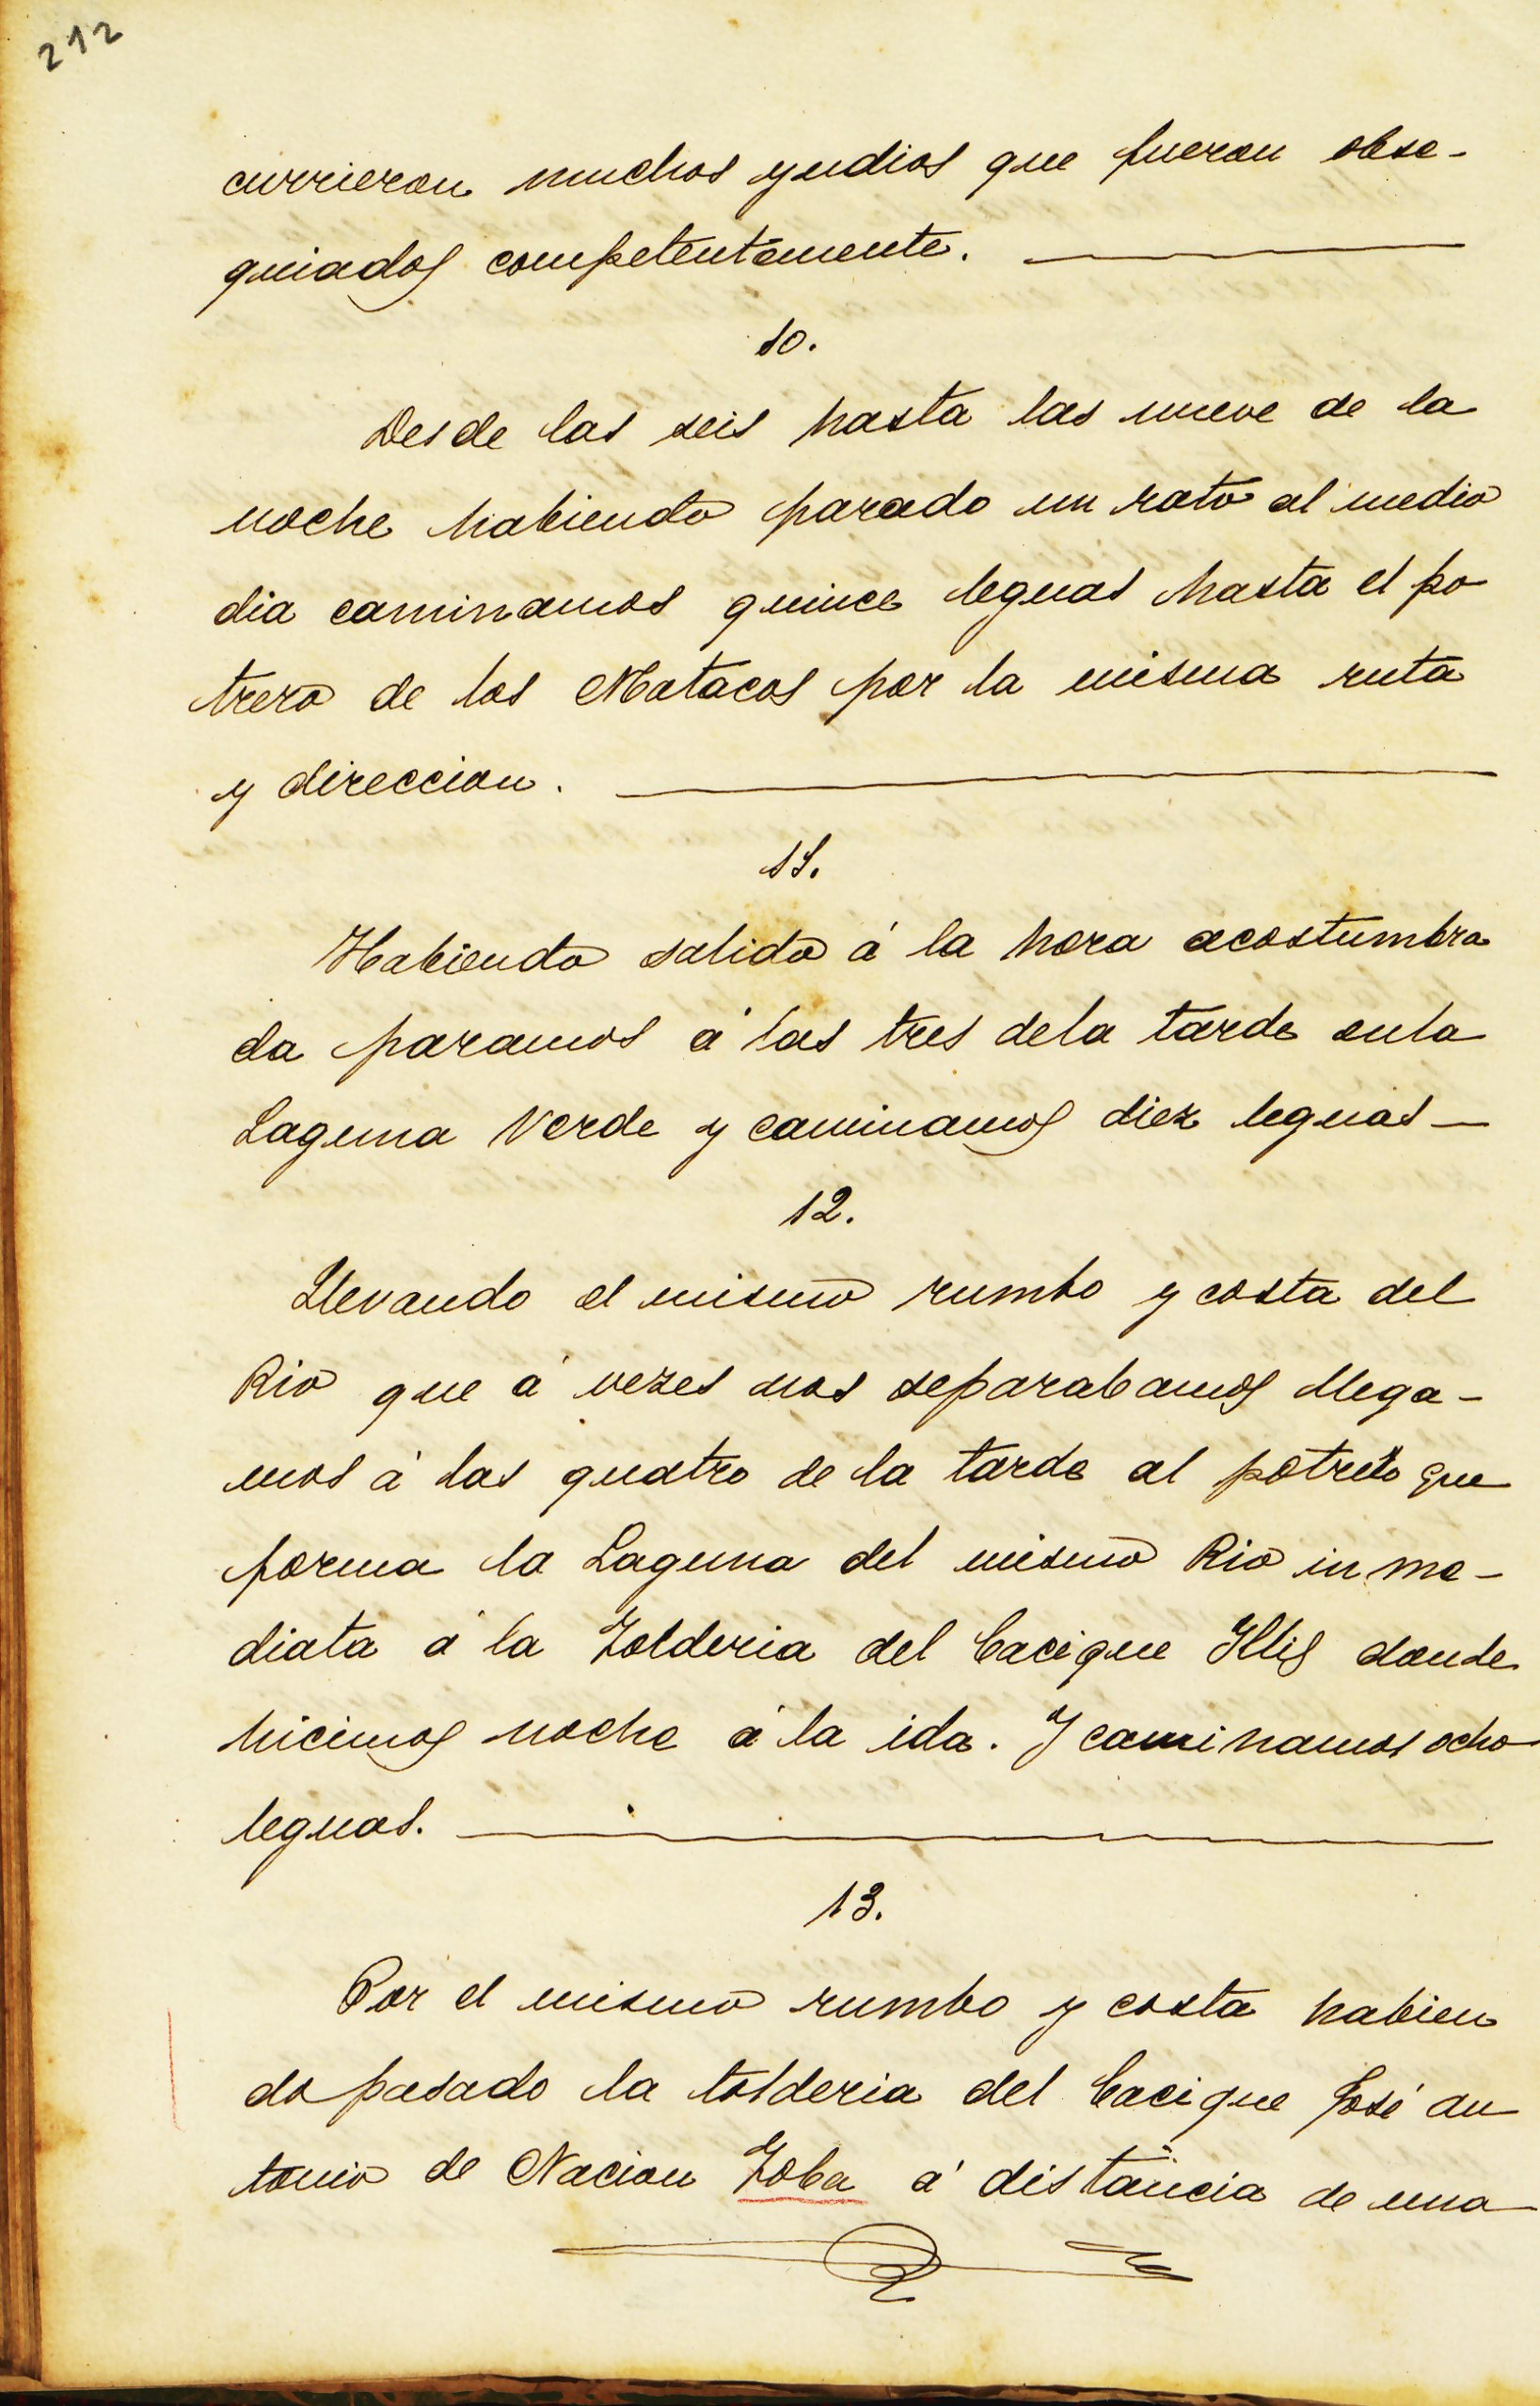 212
currieron muchos yndios que fueron obse-
quiados competentemente.
10.
Desde las seis hasta las nueve de la
noche habiendo parado un rato al medio
dia caminamos quince leguas hasta el po
trero de los Matacos por la misma ruta
y direccion.
11.
Habiendo salido á la hora acostumbra
da paramos á las tres dela tarde enla
Laguna Verde y caminamos diez leguas—
12.
Llevando el mismo rumbo y costa del
Rio que á vezes nos separabamos llega-
mos á las quatro de la tarde al potrero que
forma la Laguna del mismo Rio inme-
diata á la Tolderia del Cacique Yllis donde
hicimos noche á la ida. Y caminamos ocho
leguas.
13.
Por el mismo rumbo y costa habien
do pasado la tolderia del Cacique José an
tonio de Nacion Toba á distancia de una